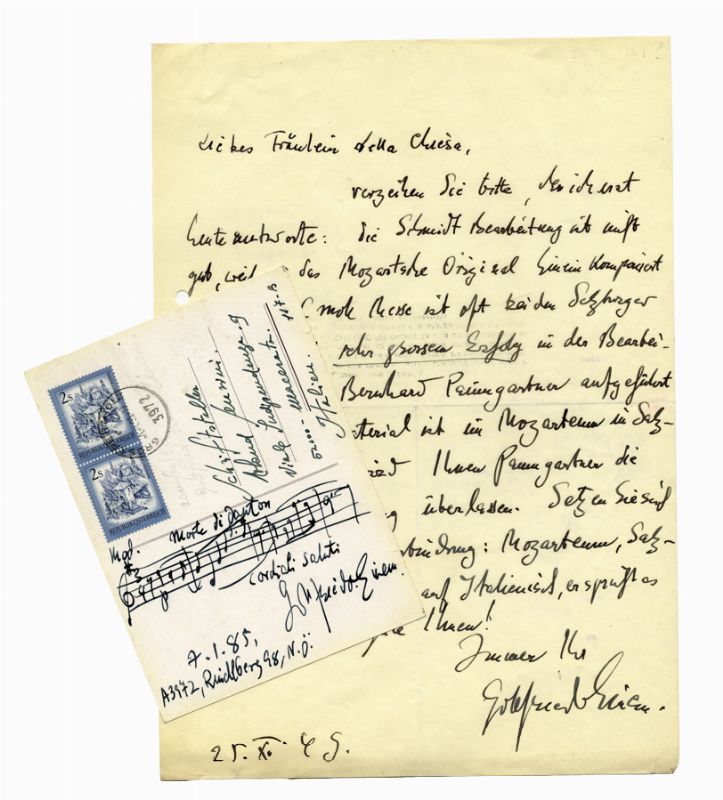 Liebes Fräulein della Chiesa,
verzeihen Sie bitte, der ich erst
heute antworte: die Schmidt Bearbeitung ist nicht
gut, weil das Mozartsche Original
moll Messe ist oft bei den Salzburger
sehr grossem Erfolg in der Bearbei-
Bernhard Paumgartner aufgeführt
terial ist im Mozarteum in Salz-
Ihnen Paumgartner die
überlassen. Setzen Sie sich
bindung: Mozarteum, Salz-
auf Italienisch, er spricht es
Ihnen!
Immer Ihr
Gottfried Einem.
25. XI. 49.
2s
REPUBLIK ÖSTERREICH
2s
REPUBLIK ÖSTERREICH
3972
Schriftsteller
Viale Indipendenza
Macerata
Italien
Morte di Danton
cordiali saluti
Gottfried Einem.
7.1.85,
A3972, Rindlberg 98, N.Ö.